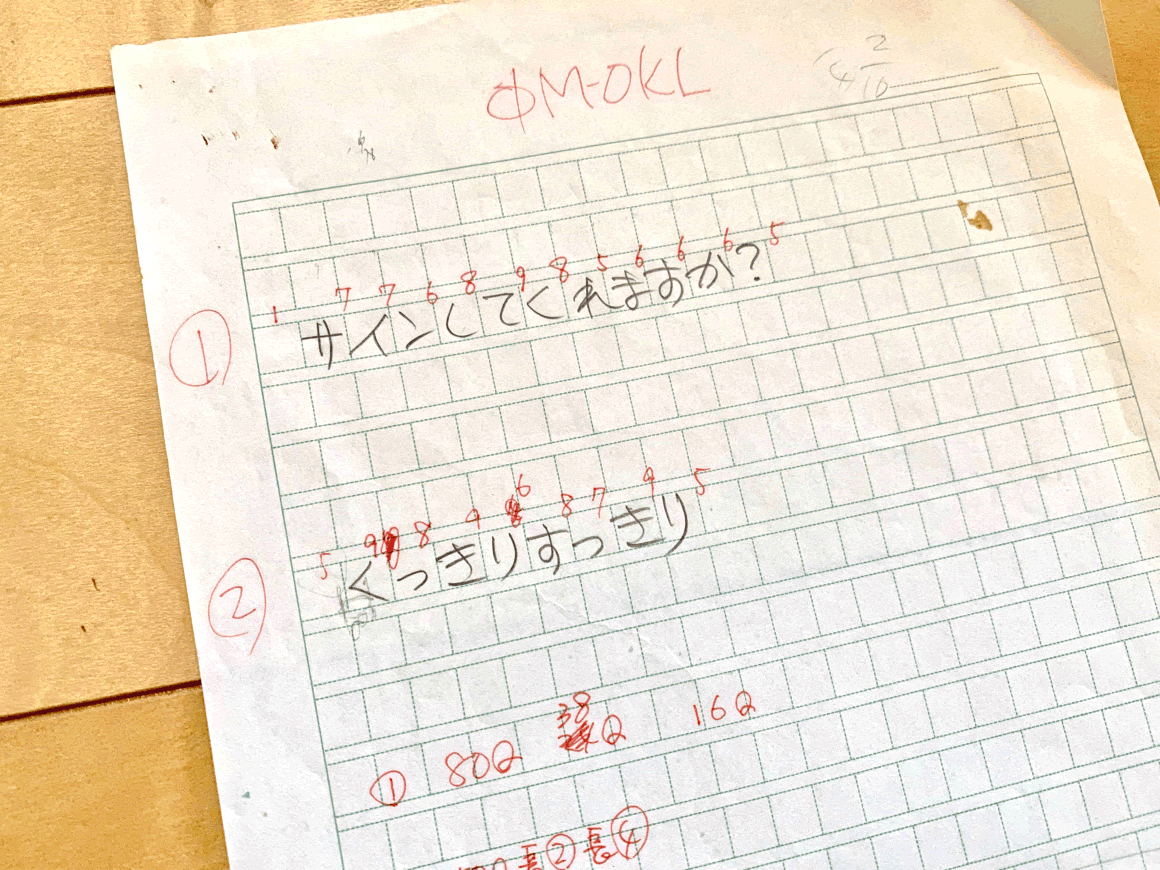 ΦM-OKL
4 2/10
1 7 7 6 8 9 8 5 6 6 6 5
① サインしてくれますか?
5 9 8 9 6 8 7 9 5
② くっきりすっきり
① 80Q 38Q 16Q
長② 長④